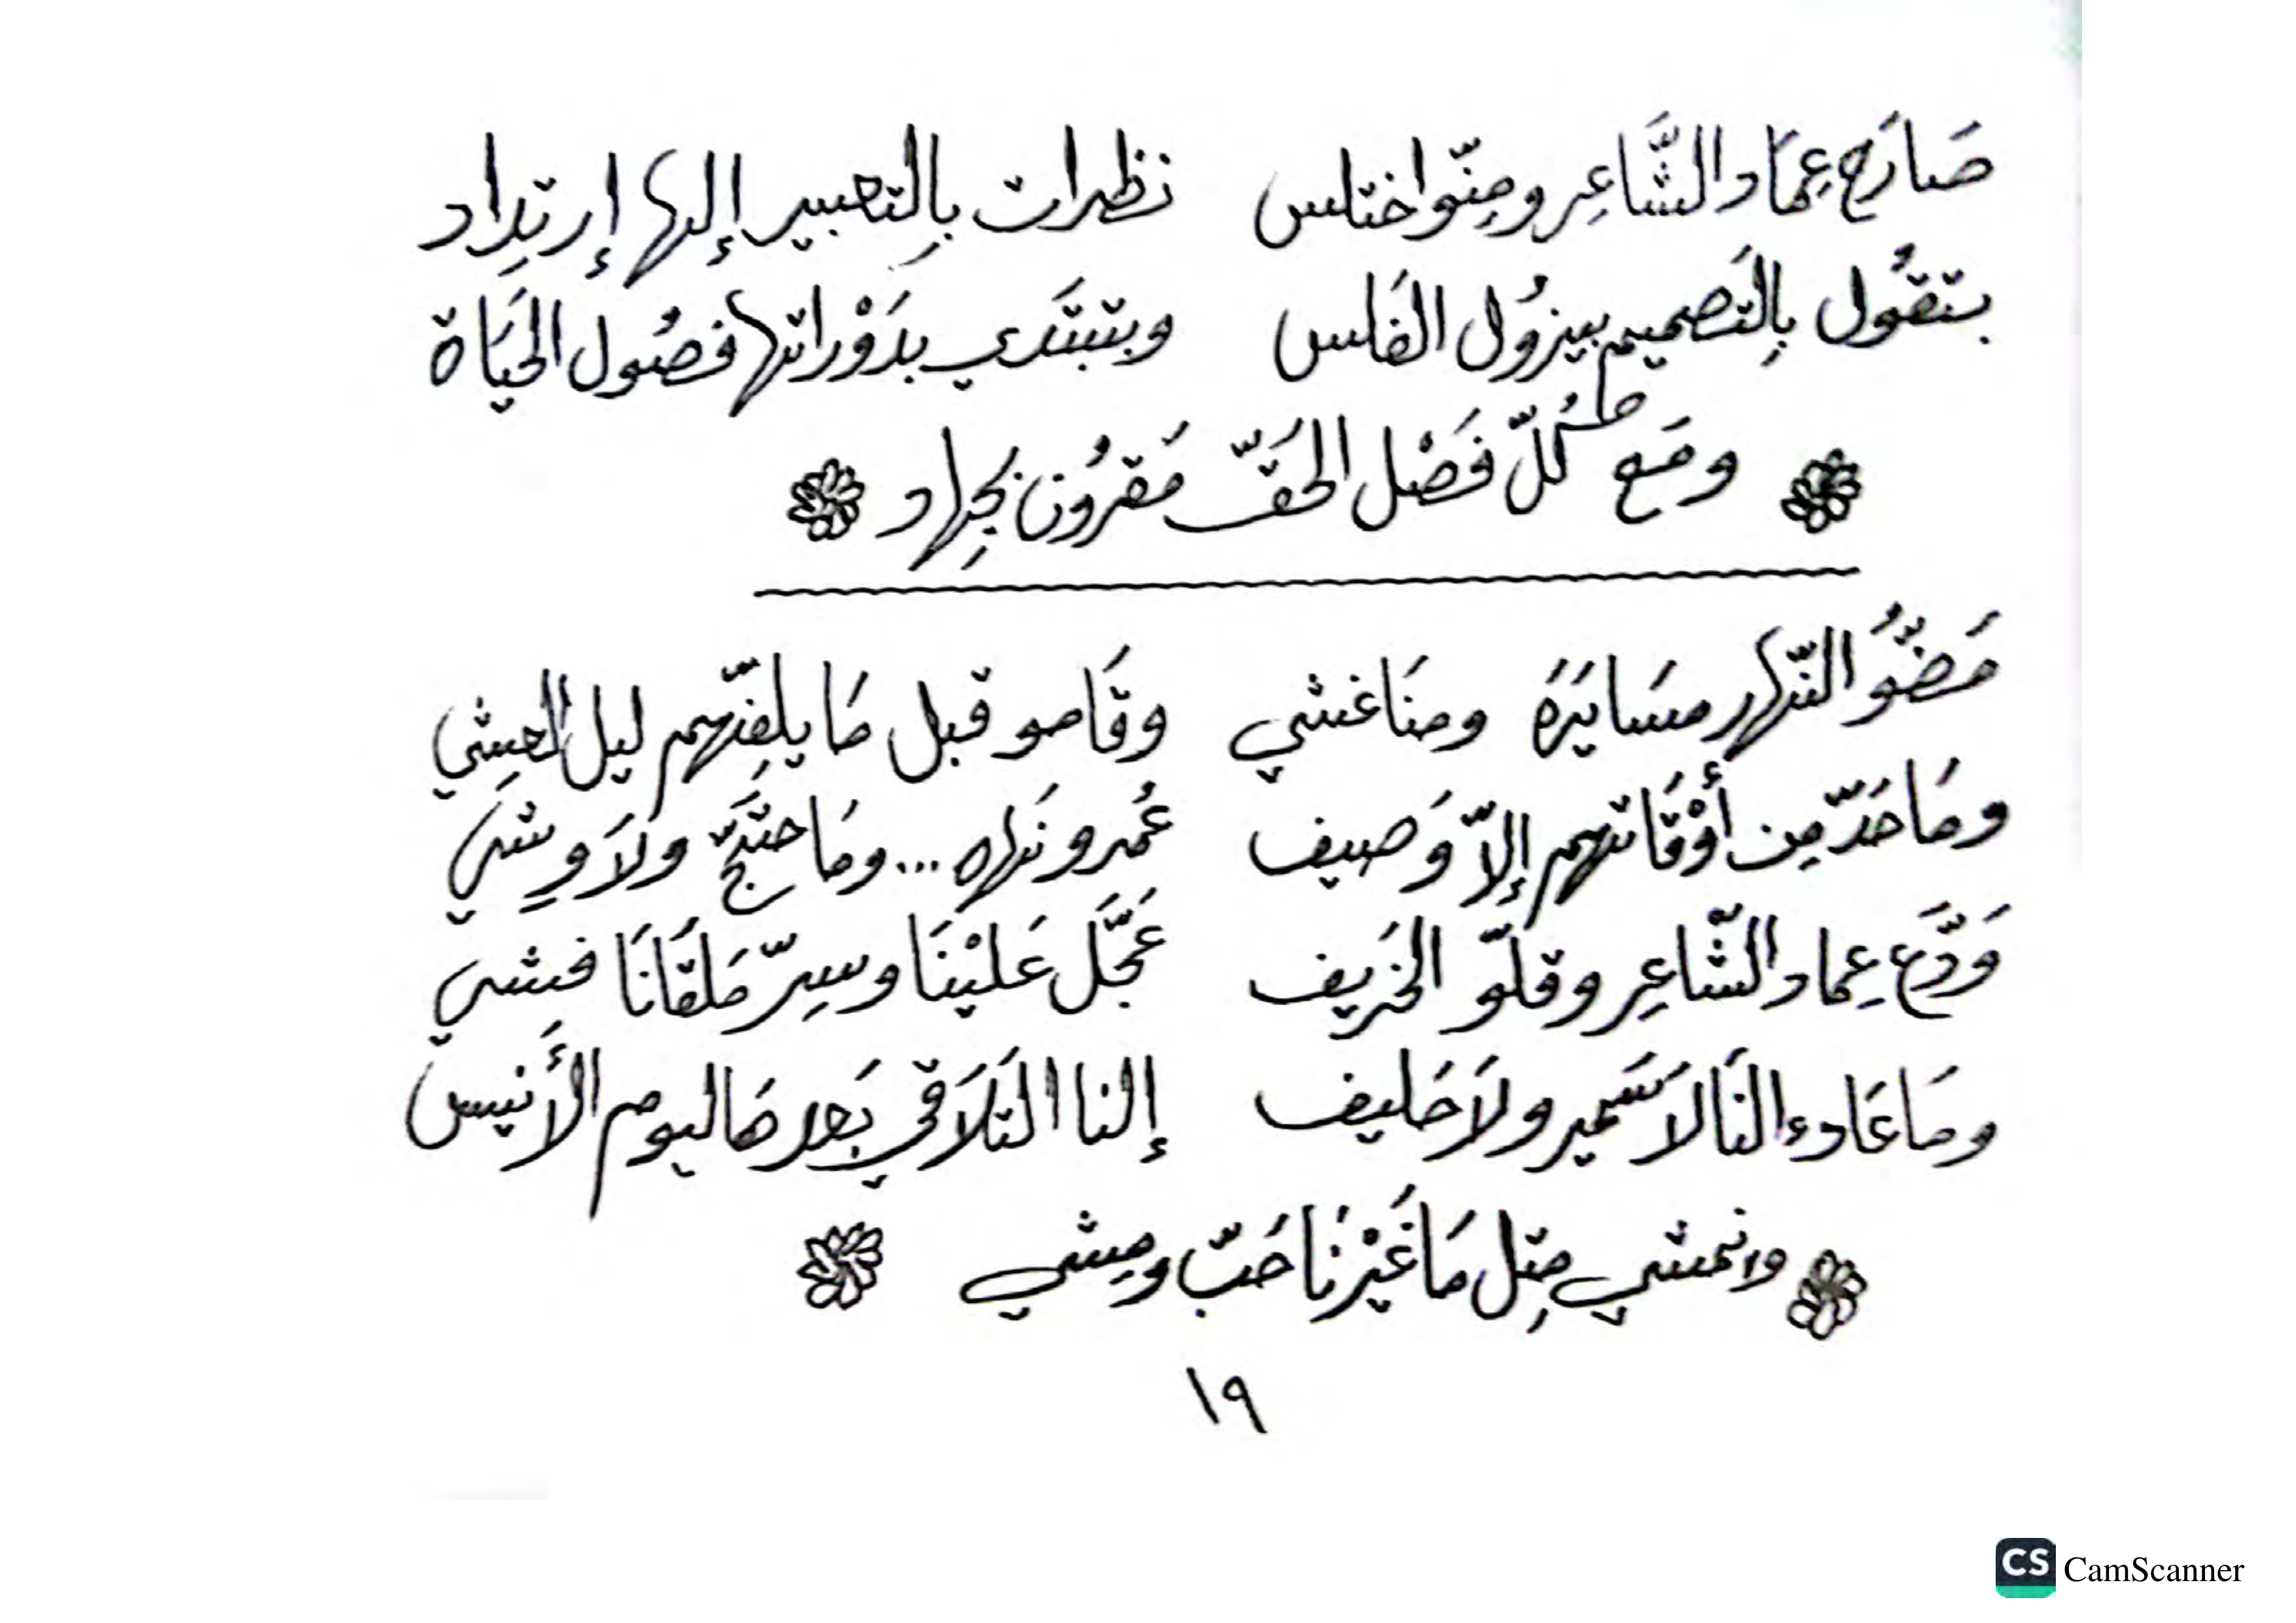 صَارَح عِمَاد الشَّاعِر ومِنّو اختلس    نظرات بِالتعبير إلها إرتِداد
بتقُول بِالتَصميم بيزوُل الفَاس    وبتبتَدي بدَوْراتها فصُول الحَيَاة
ومَع كُلّ فَصْل الحَقّ مَقرُون بجِهاد
مَضُّو النّهار مسَايَرَة ومنَاغشي    وقَامو قبل مَا يلفِّهم ليل العِشي
ومَا حَدّ مِن أوْقَاتهم إلاّ وَصيف    عُمرو نَهاه ... ومَا حتَجّ ولاَ وِشي
وَدَّع عِماد الشّاعِر وقلّو الخَريف    عَجَّل عَليْنَا وسِرّ مَلقَانَا فِشي
ومَا عَاد النَا لاَ سَمير ولاَ حَليف    إلنا التَلاَقي بَعد هَاليوم الأَنيس
وانمشي مِتِل مَا غَيْرنَا حَبّ ومِشي
١٩
CS CamScanner